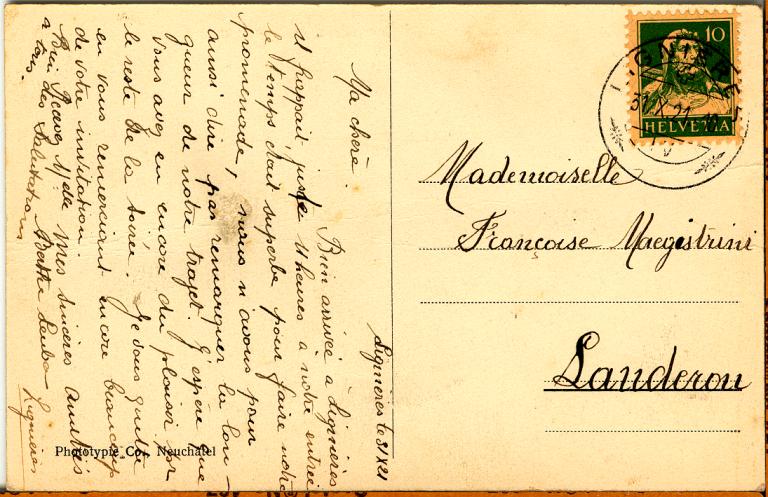 Lignières le 31 X 21
Ma chère.
Bien arrivée à Lignières
il frappait juste 11 heures à notre entrée
le temps était superbe pour faire notre
promenade, nous n'avons pour
aussi dire pas remarquer la lon-
gueur de notre trajet. J'espère que
vous avez eu encore du plaisir pr
le reste de la soirée. Je vous quitte
en vous remerciant encore beaucoup
de votre invitation.
Recevez Mlle mes sincères amitiés
Bien des Salutations
à tous.
Lignières
Phototypie Co., Neuchâtel
10
HELVETIA
LIGNIÈRES
31.X.21
Mademoiselle
Françoise Maegistrini
Landeron